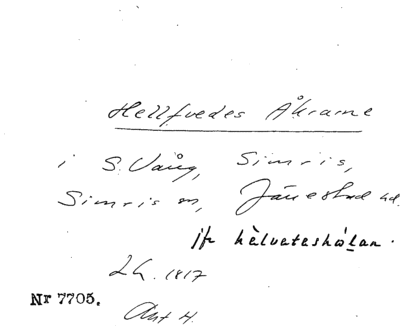 Hellfvedes Åkrarne
i S. Vång, Simris,
Simris sn, Järrestad hd.
jfr hèlveteshɷlan.
LH. 1817
Nr 7705.
Akt H.